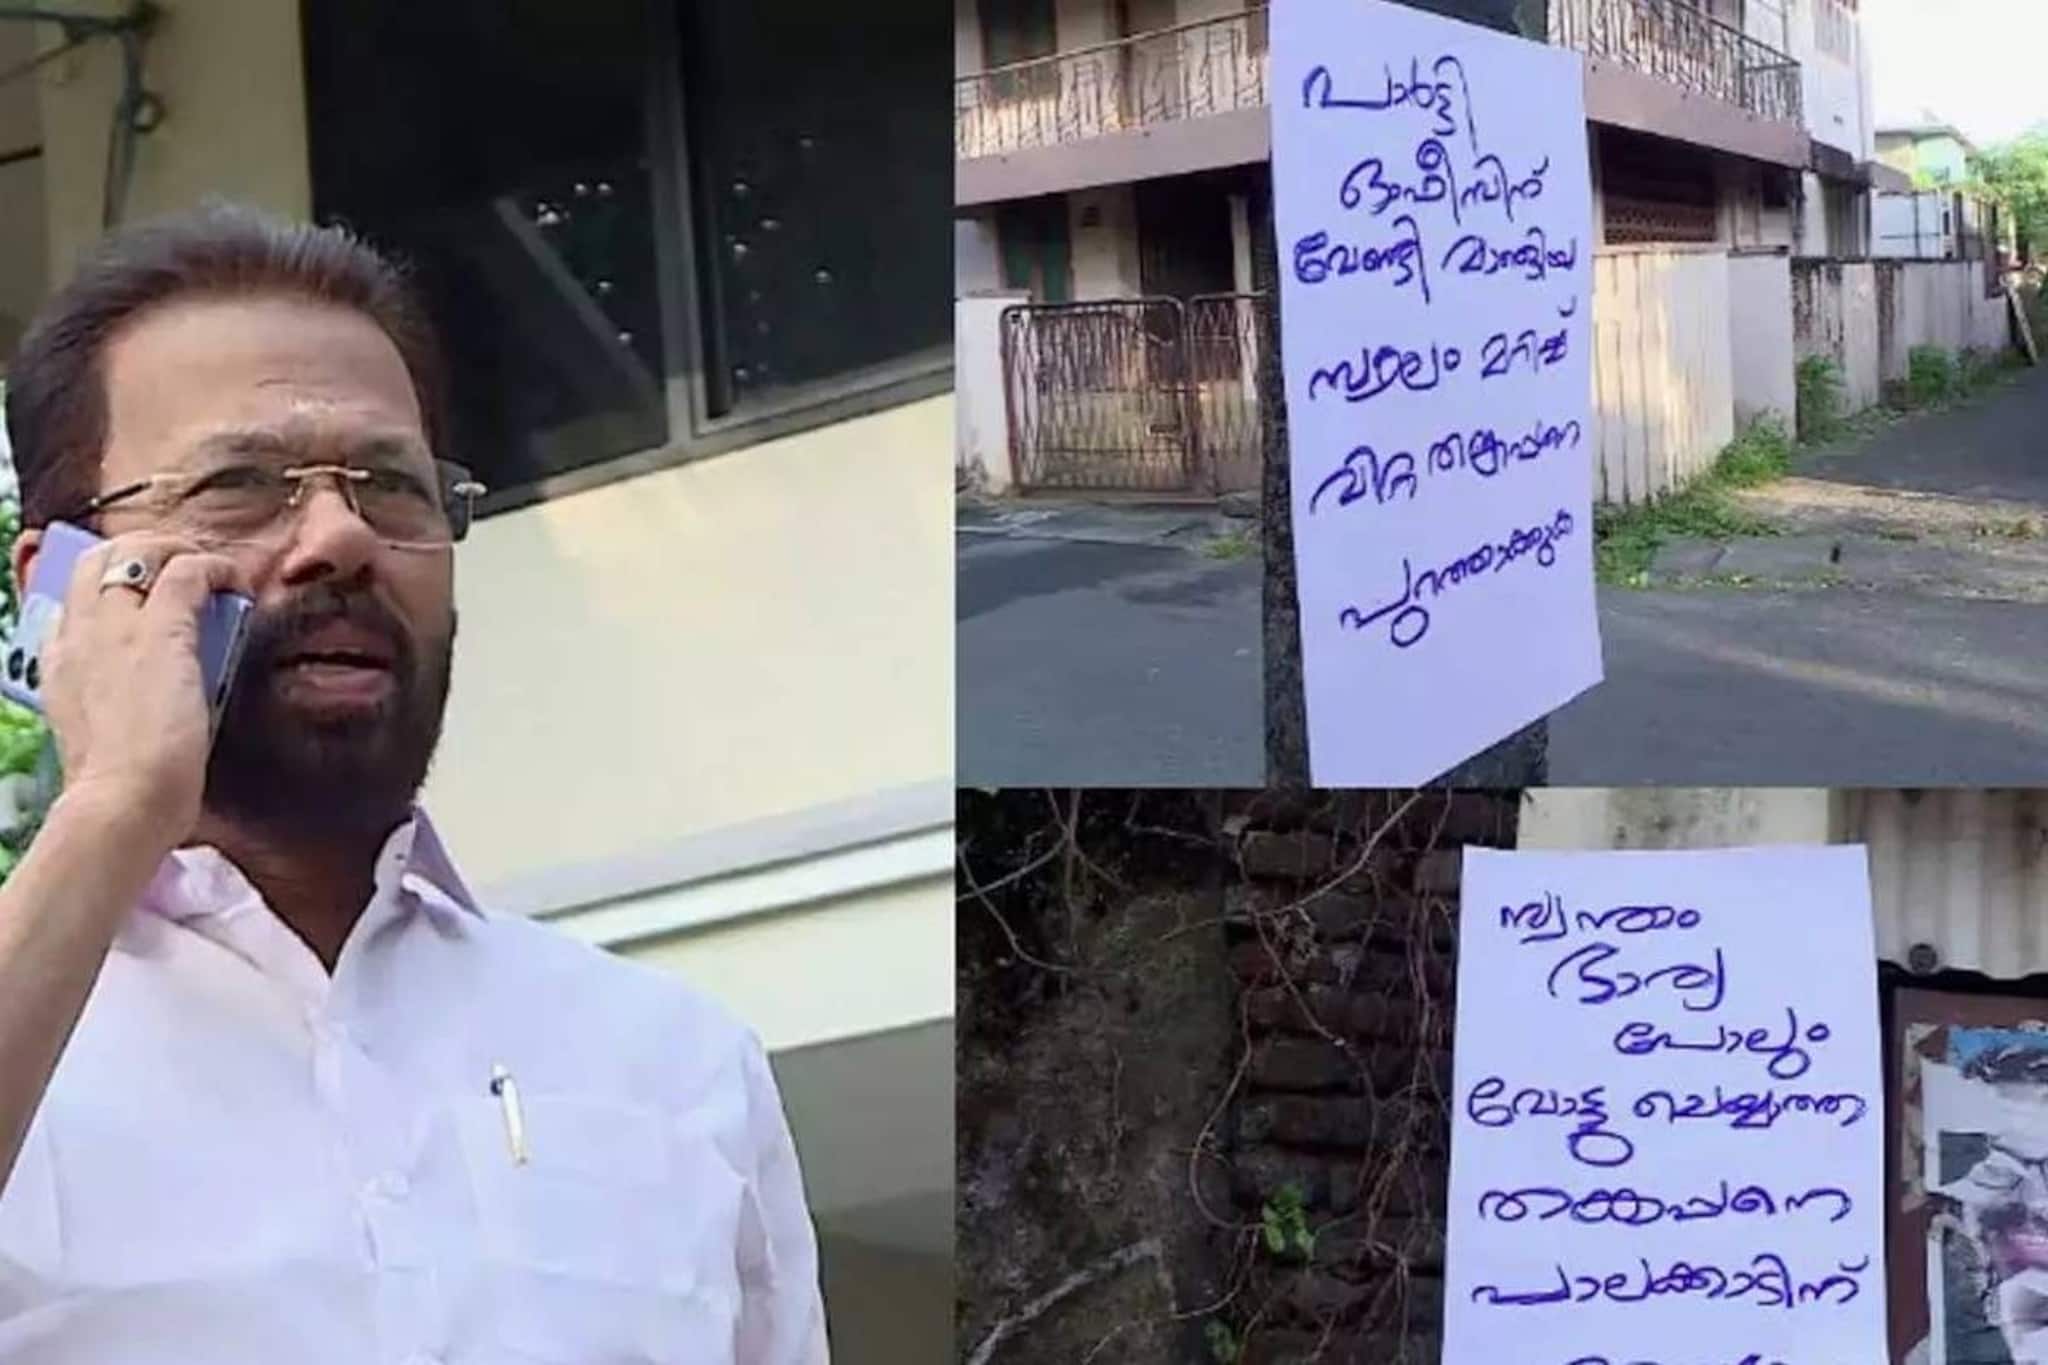 പാർട്ടി
ഓഫീസിന്
വേണ്ടി വാങ്ങിയ
സ്ഥലം മറിച്ച്
വിറ്റ തങ്കപ്പനെ
പുറത്താക്കുക
സ്വന്തം
ഭാര്യ
പോലും
വോട്ടു ചെയ്യാത്ത
തങ്കപ്പനെ
പാലക്കാടിന്